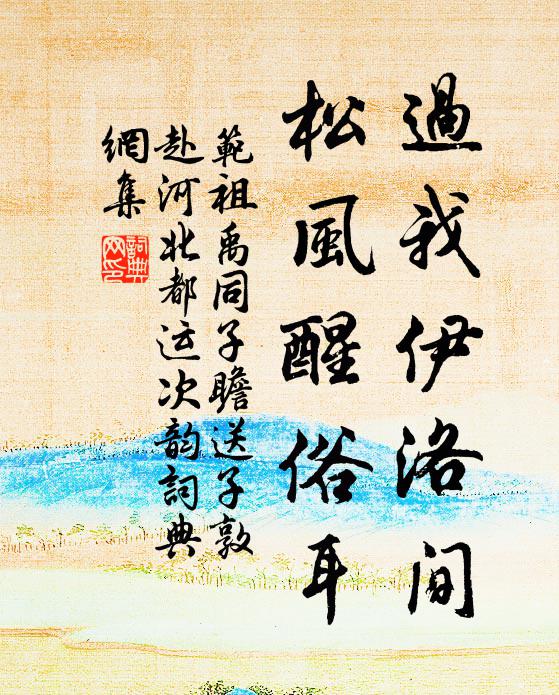 過我伊洛间
松風醒俗耳
範祖禹同子瞻送子敦
赴河北都运次韵詞典
網集
詞典
网印